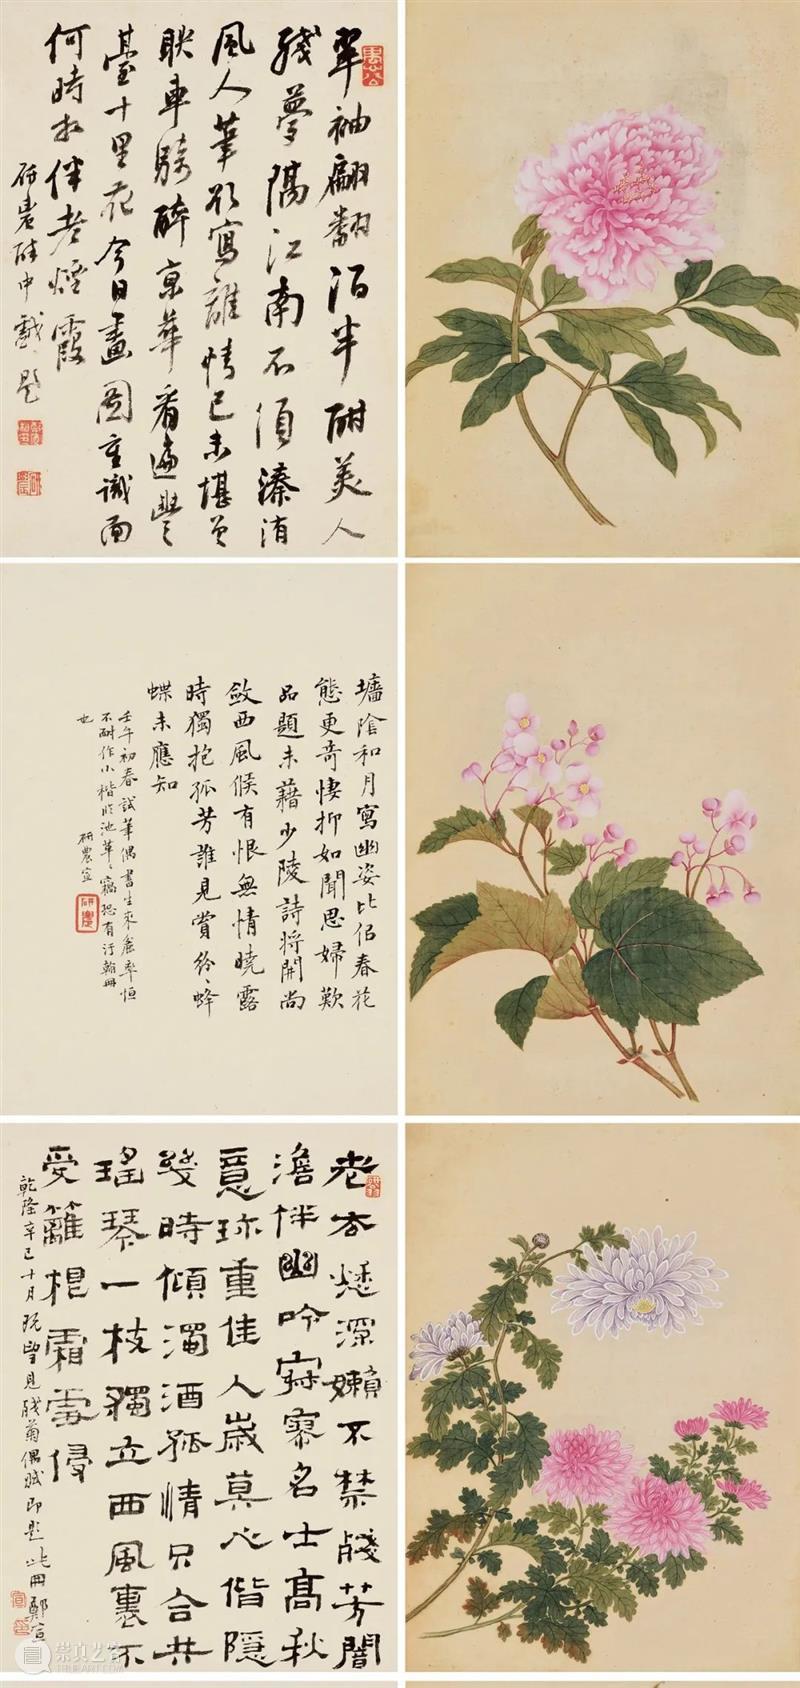 翠袖翩翻酒半酣美人
殘夢隔江南不須溱洧
風人筆欲寫離情已未堪曾
跌車騎醉京華看遍豐
臺十里花今日畫圖重識面
何時相伴老煙霞
研農醉中戲題
墻陰和月寫幽姿比侶春花
態更奇悽抑如聞思婦歎
品題未藉少陵詩將開尚
斂西風候有恨無情曉露
時獨抱孤芳誰見賞紛〻蜂
蝶未應知
壬午初春試筆偶書生來麤率恒
不耐作小楷臨池草〻竊恐有汙翰冊
也
研農宣
研農
老去愁深嬾不禁殘芳闇
澹伴幽吟寂寥名士高秋
意珍重佳人歲莫心偕隱
幾時傾濁酒孤情只合共
瑤琴一枝獨立西風裏不
受籬根霜雪侵
乾隆辛巳十月既望見殘菊偶賦即題此冊鄭宣
崇真艺客